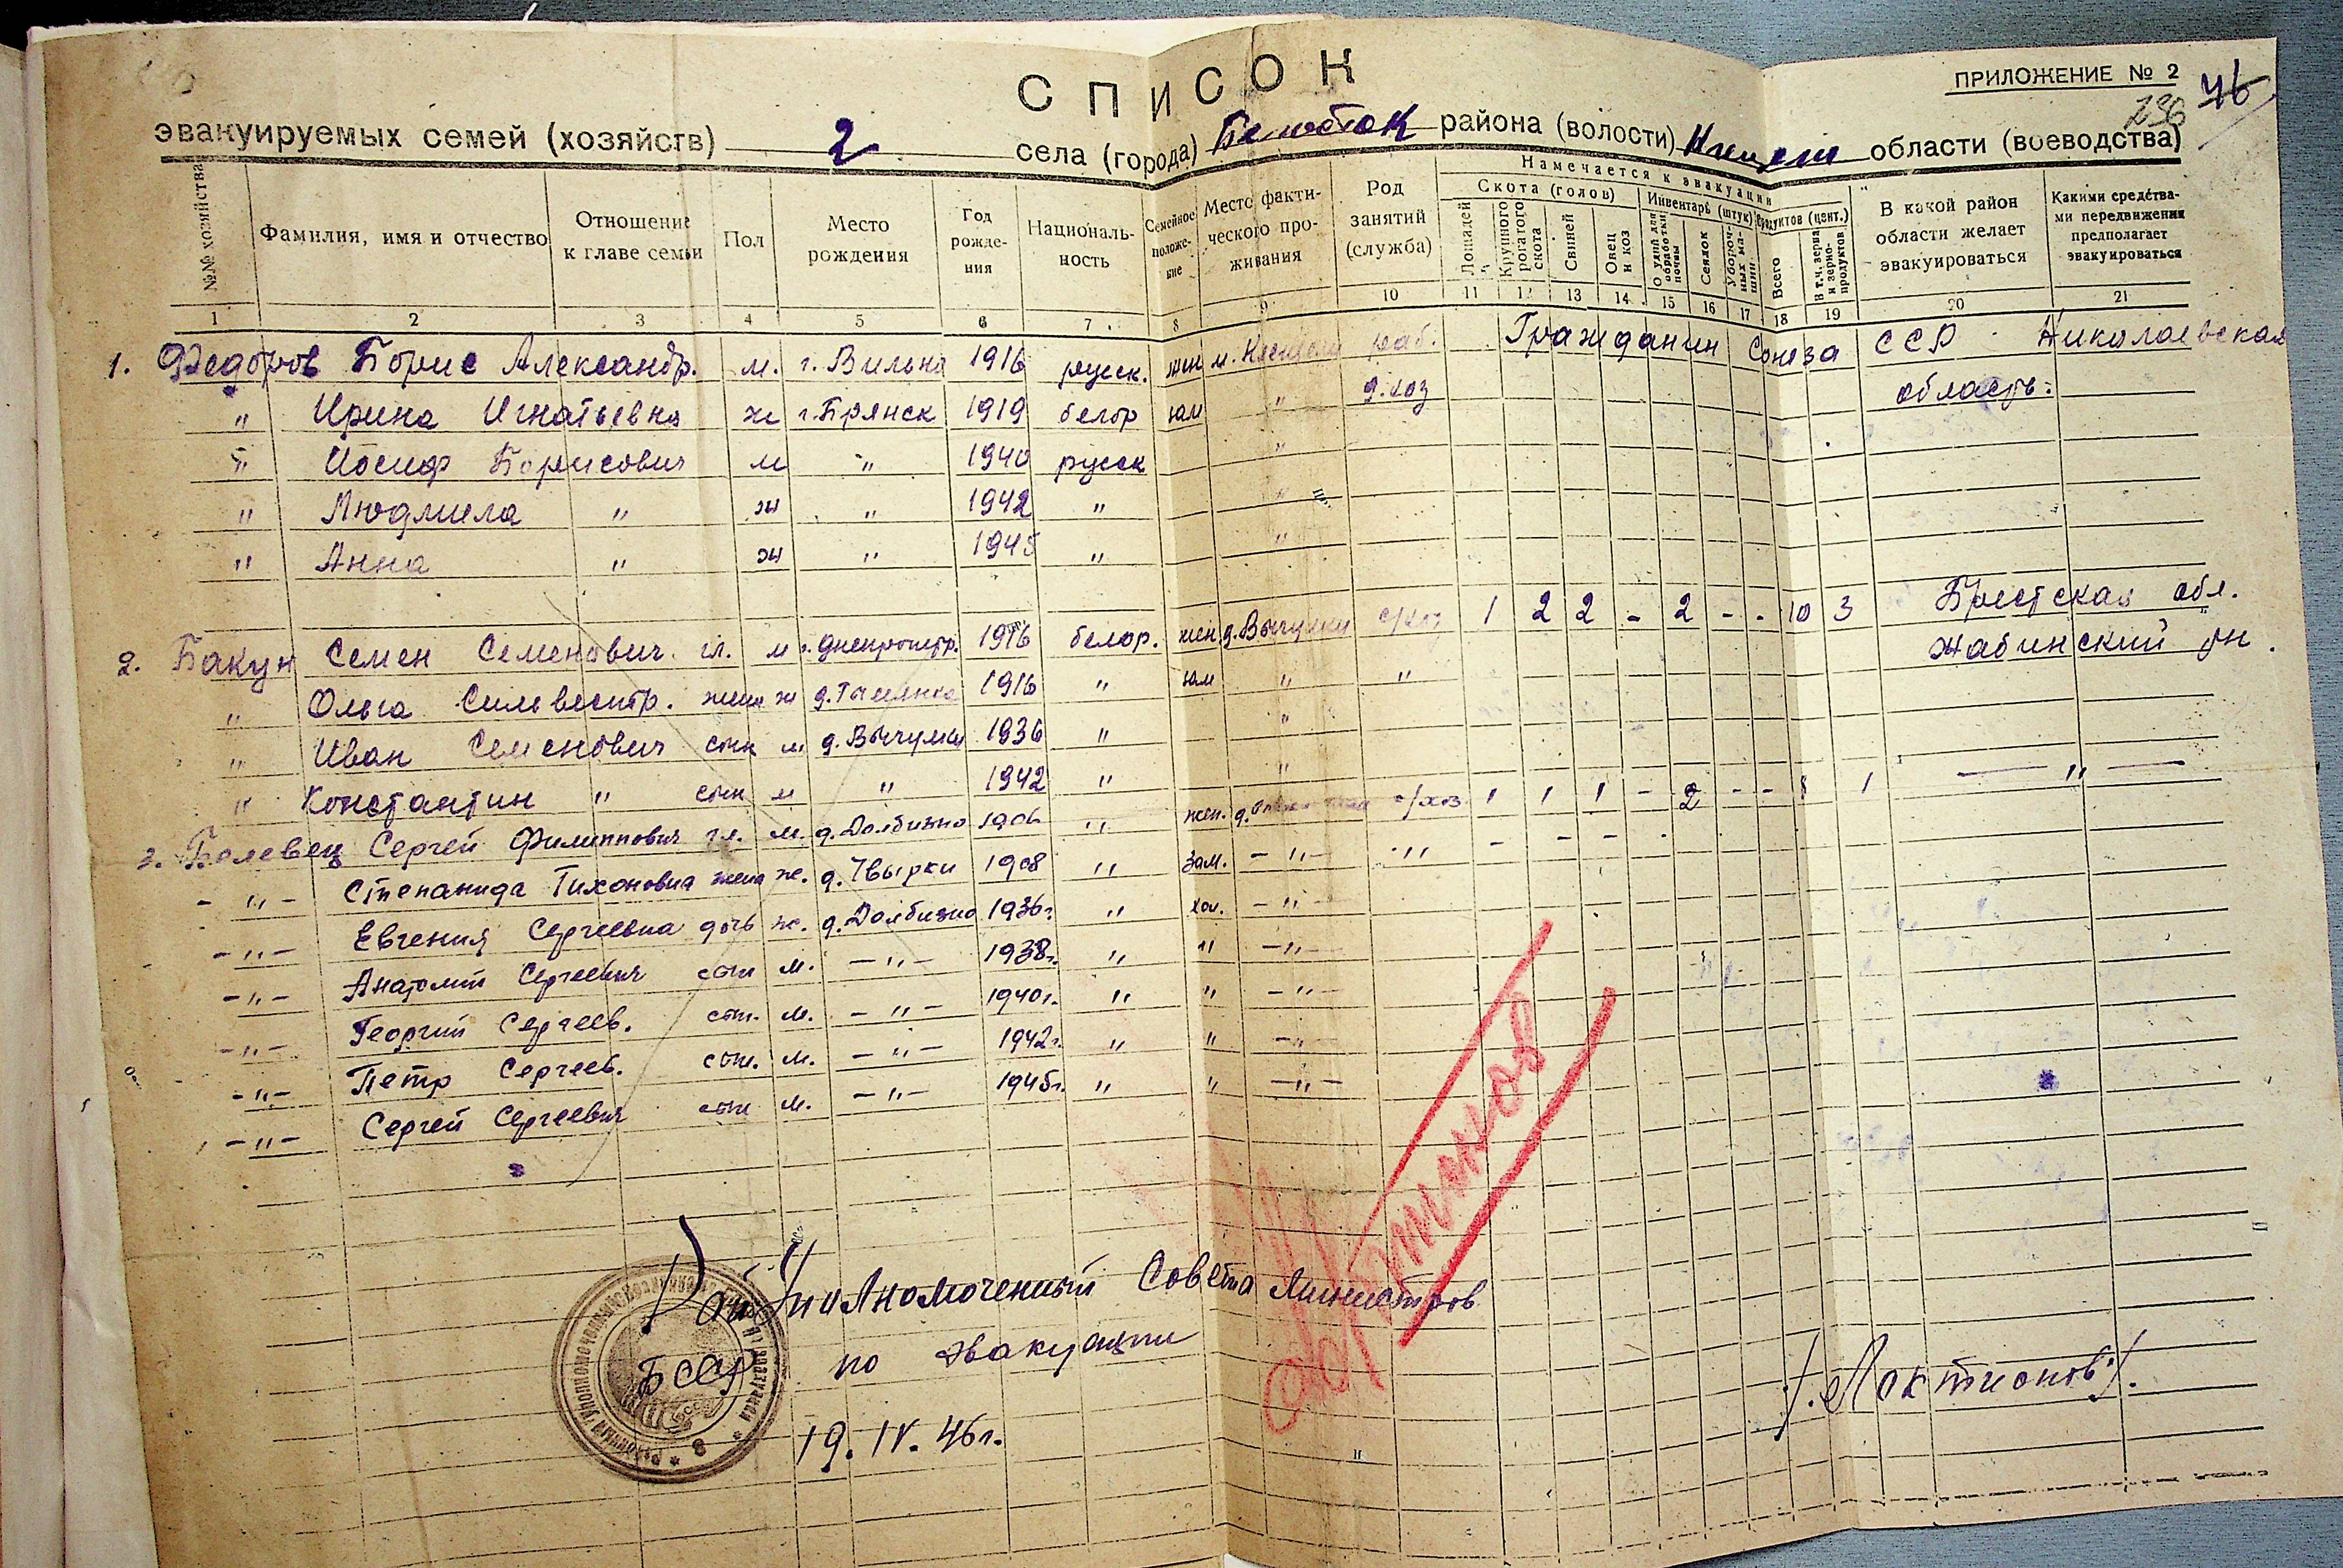 СПИСОК
ПРИЛОЖЕНИЕ № 2
46
236
эвакуируемых семей (хозяйств) 2 села (города) Белосток района (волости) области (воеводства)
№№ хозяйства Фамилия, имя и отчество Отношение к главе семьи Пол Место рождения Год рождения Националь-ность Семейное положе-ние Место факти-ческого про-живания Род занятий (служба) Намечается к эвакуации Скота (голов) Лошадей Крупного рогатого скота Свиней Овец и коз Инвентарь (штук) Сеялок Убороч-ных ма-шин Продуктов (цент.) Всего В т.ч. зерна и зерно-продуктов В какой район области желает эвакуироваться Какими средства-ми передвижения предполагает эвакуироваться
1 2 3 4 5 6 7 8 9 10 11 12 13 14 15 16 17 18 19 20 21
1. Федоров Борис Александр. м. г. Вильна 1916 русск. жен м. раб. Гражданин Союза ССР Николаевская
" Ирина Игнатьевна ж г. Брянск 1919 белор зам " д.хоз область.
" Иосиф Борисович м " 1940 русск "
" Людмила " ж " 1942 " "
" Анна " ж " 1945 " "
2. Бакун Семен Семенович. гл. м г. Днепропетр. 1916 белор. жен д. Вычулки с/хоз 1 2 2 - 2 - - 10 3 Брестская обл.
" Ольга Сильвестр. жена ж 1916 " зам " " Жабинский рн.
" Иван Семенович сын м д. Вычулки 1936 " "
" Константин " сын м " 1942 " "
3. Белевец Сергей Филиппович гл. м. д. Долбизно 1906 " жен. с/хоз 1 1 1 - 2 - - 8 1 — " —
- " - Степанида Тихоновна жена ж. д. Чвырки 1908 " зам. - " - " - - -
- " - Евгения Сергеевна дочь ж. д. Долбизно 1936г. " хол. - " -
- " - Анатолий Сергеевич сын м. - " - 1938г. " " - " -
- " - Георгий Сергеев. сын. м. - " - 1940г. " " - " -
- " - Петр Сергеев. сын. м. - " - 1942г. " " - " -
- " - Сергей Сергеевич сын м. - " - 1945г. " " - " -
Рай Уполномоченный Совета Министров
БССР по эвакуации /.Локтионов/.
19. IV. 46г.